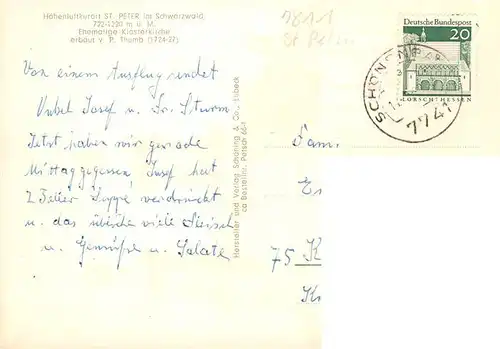 Höhenluftkurort ST. PETER im Schwarzwald,
722-1220 m ü. M.
Ehemalige Klosterkirche
erbaut v. P. Thumb (1724-27)
Von einem Ausflug sendet
Onkel Josef u. Fr. Sturm.
Jetzt haben wir gerade
Mittaggegessen Josef hat
2 Teller Suppe verdrückt
u. das übliche viele Fleisch
u. Gemüse u. Salate
Hersteller und Verlag Schöning & Co., Lübeck
zu Bestellnr. Petsch 664
7811
St Peter
Deutsche Bundespost
20
LORSCH/HESSEN
SCHÖN
7741
Fam.
75 K